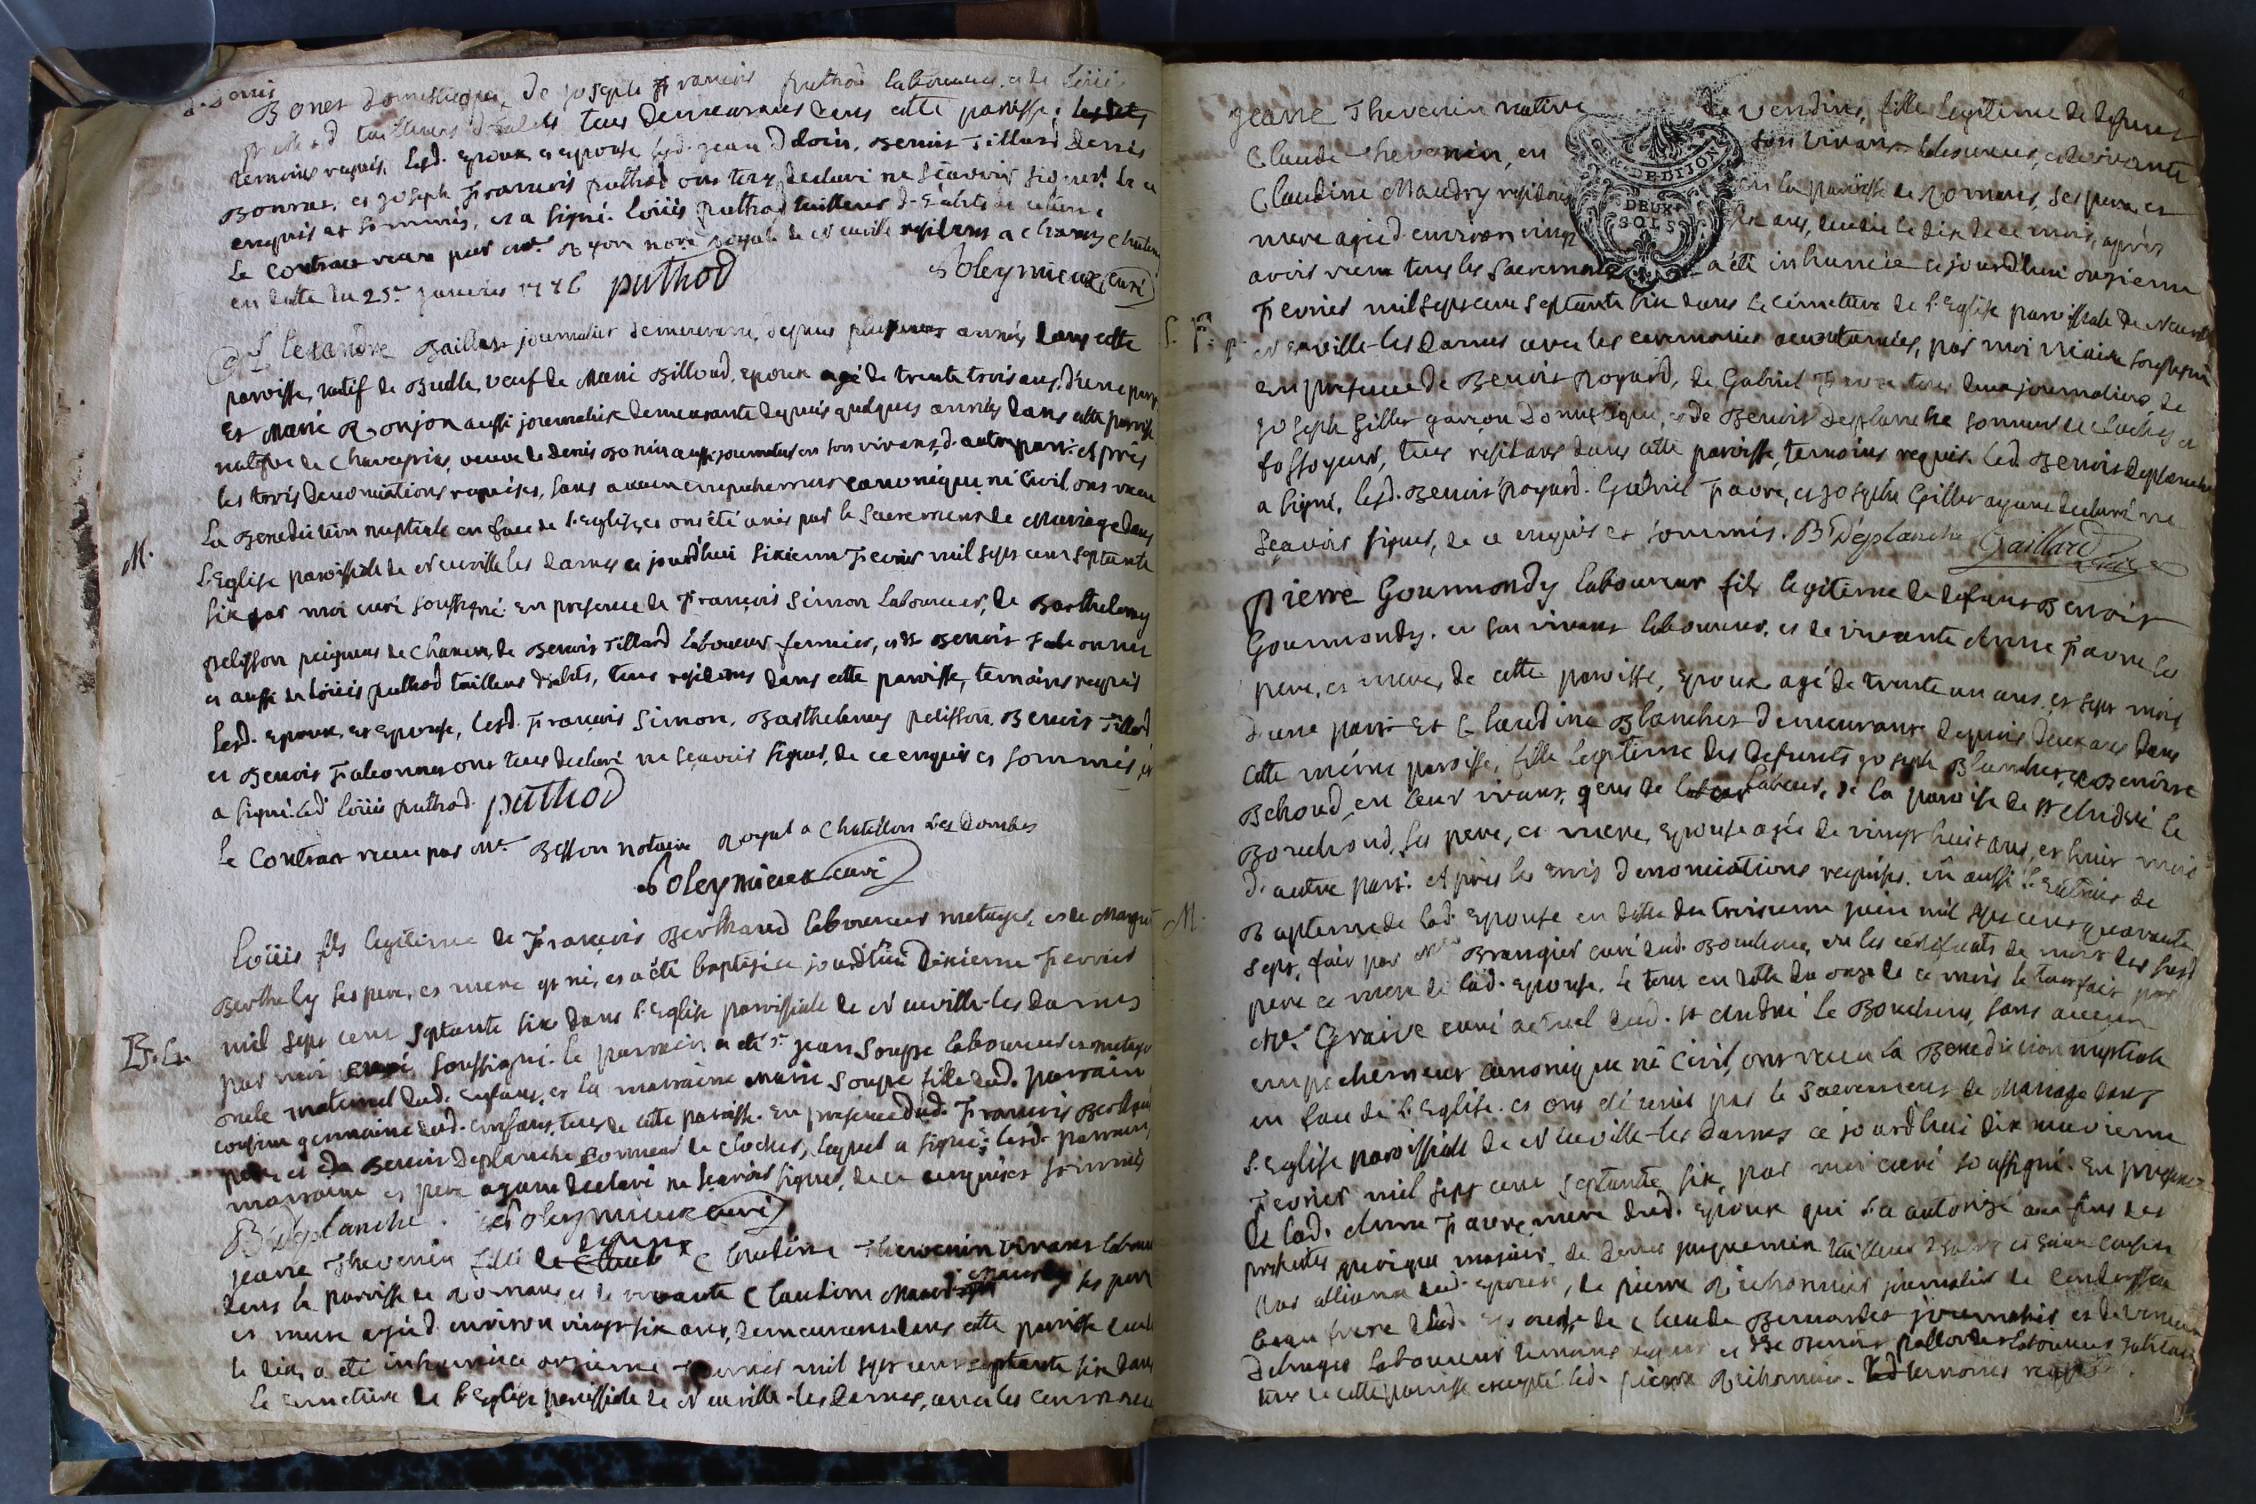 d. Denis
Bonet domestique, de Joseph François puthod laboureur, et de Loüis
puthod tailleurs d'habits tous demeurants dans cette paroisse; les dits
temoins requis, lesd. Epoux et epouse lesd. Jean Odoin, Benoit Tillard Denis
Bonnet, et Joseph François puthod ont tous declaré ne sçavoir signer de ce
enquis et sommés, et a signé Loüis puthod tailleurs d'habits
le Contract recu par Me. Royal de Neuville residant a
en datte du 25e. janvier 1776 puthod Soleymieux curé
Alexandre Baillat journalier demeurant, depuis plusieurs années dans cette
paroisse, natif de Budle, veuf de Marie Billoud, epoux agé de trente trois ans, d'une part
Et Marie Ronjon aussi journaliere demeurante depuis quelques années dans cette paroisse
native de Chaveyria, veuve de Denis Bonin aussi journalier en son vivant, d'autre part. Après
les trois denonciations requises, sans aucun empechement canonique, ni Civil ont recu
La Benediction nuptiale en face de l'Eglise, et ont été unis par le Sacrement de Mariage dans
M.
l'Eglise paroissiale de Neuville les Dames ce jourd'hui sixieme Fevrier mil sept cent septante
six par moi curé soussigné en presence de François Simon Laboureur, de Barthelemy
pelisson peigneur de Chanvre, de Benoit Tillard Laboureur fermier, et de Benoit Falconnet
et aussi de Loüis puthod tailleurs d'habits, tous residens dans cette paroisse, temoins requis
Lesd. epoux, et Epouse, lesd. François Simon, Barthelemy pelisson, Benoit Tillard
et Benoit Falconnet ont tous declaré ne sçavoir signer, de ce enquis et sommés, et
a signé led. Loüis puthod. puthod
Le Contract recu par Me. Besson notaire Royal a Chatillon Les Dombes
Soleymieux curé
Loüis fils legitime de François Berthaud laboureur metayer, et de Margue
Berthely ses pere, et mere né, et a été baptisé ce jourd'hui Dixieme Fevrier
mil sept cent septante six dans l'Eglise paroissiale de Neuville-les Dames
B. L.
par moi curé soussigné. le parrain a été Sr. Jean Soupe laboureur et metayer
oncle maternel dud. Enfant, et la marraine Marie Soupe fille dud. parrain
cousine germaine dud. enfant, tous de cette paroisse. En presence dud. François Berthaud
pere et de Benoit Deplanche Sonneur de Cloches, lequel a signé; lesd. parrain
marraine et pere ayant declaré ne sçavoir signer, de ce enquis et sommés
B Déplanche. Soleymieux curé
Jeanne Thevenin fille de defunt Claudine Thevenin vivant labour
dans la paroisse de Romans, et de vivante Claudine Maudry ses pere
et mere agée d'environ vingt six ans, demeurante dans cette paroisse
le dix, a été inhumée ce onzieme Fevrier mil sept cent septante six dans
le Cimetiere de l'Eglise paroissiale de Neuville-les Dames, avec les ceremonies
Jeanne Thevenin native de Vendins, fille legitime de defunt
Claude Thevenin, en son vivant laboureur, et de vivante
Claudine Maudry residans en la paroisse de Romans, ses pere, et
mere agée d'environ vingt six ans, decedée le dix de ce mois, après
avoir recu tous les Sacremens a été inhumée ce jourd'hui onzieme
GEN. DE DIJON
DEUX
SOLS
Fevrier mil sept cent septante six dans Le Cimetiere de l'Eglise paroissiale de Neuville
S. P. p.
Neuville-les Dames avec les ceremonies accoutumées, par moi Vicaire soussigné
en presence de Benoit Poyard, de Gabriel Favre tous deux journaliers, de
Joseph Gillet garçon domestique, et de Benoit Deplanche sonneur de Cloches et
fossoyeur, tous residans dans cette paroisse, temoins requis. Led. Benoit Deplanche
a signé, lesd. Benoit Poyard. Gabriel Favre, et Joseph Gillet ayant declaré ne
sçavoir signer, de ce enquis et sommés. B Déplanche Gaillard Vicaire
Pierre Gourmondy laboureur fils legitime de defunt Benoit
Gourmondy. en son vivant laboureur, et de vivante Anne Favre les
pere, et mere, de cette paroisse, Epoux agé de trente un ans, et sept mois
d'une part Et Claudine Blanchet demeurant depuis deux ans dans
cette même paroisse, fille Legitime des defunts Joseph Blanchet, et Benoite
Behoud, en leur vivant, gens de labeur, de la paroisse de St André le
Bouchoud, ses pere, et mere, Epouse agée de vingt huit ans, et huit mois
d'autre part. Après les trois denonciations requises. vû aussi l'Extrait de
M.
Bapteme de lad. Epouse en datte du troisieme juin mil sept cent quarante
sept, fait par Mre Brangier curé dud. Bouchoux, vu les certificats de mort des susd.
pere et mere de lad. epouse. le tout en datte du onze de ce mois le tout fait par
Mr. Graive curé actuel dud. St André le Bouchoux, sans aucun
empechement canonique ni Civil, ont recu la Benediction nuptiale
en face de l'Eglise. et ont été unis par le Sacrement de Mariage dans
l'Eglise paroissiale de Neuville-les Dames ce jourd'hui dix neuvieme
Fevrier mil sept cent septante six, par moi curé soussigné. En presence
de lad. Anne Favre mere dud. Epoux qui l'a autorisé aux fins des
presentes quoique majeur, de Denis Jaquemin tailleur d'habits et cousin
par alliance dud. epoux, de Pierre Richonnier journalier de Condeyssiat
beau frere de lad. Epouse, de Claude Bernardet journalier et de Vincent
laboureur temoins requis et de Benoit pallordet laboureur habitans
tous de cette paroisse excepté led. Pierre Richonnier. temoins requis